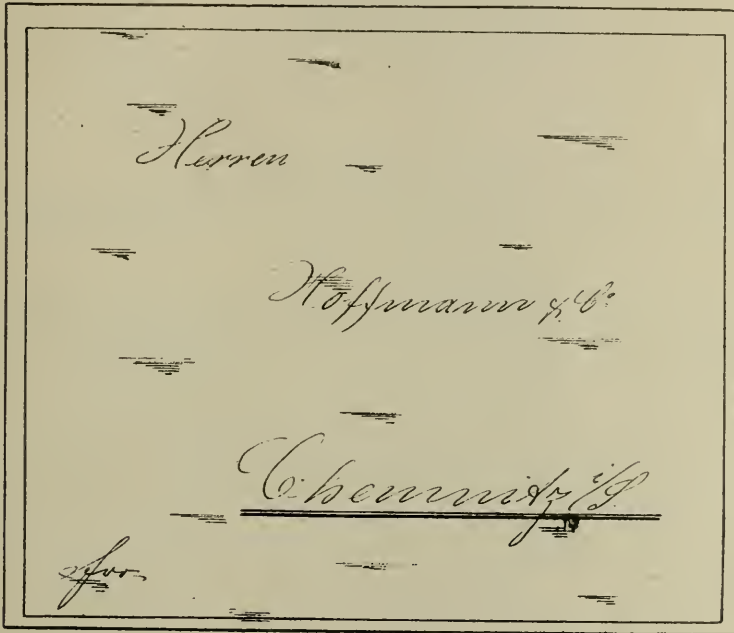 Herren
Hoffmann & Co.
Chemnitz i/S.
fro.